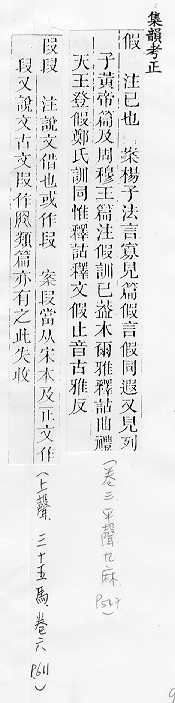 集韻考正
假　注已也　案楊子法言寡見篇假言假同遐又見列
子黃帝篇及周穆王篇注假訓已蓋本爾雅釋詁曲禮
天王登假鄭氏訓同惟釋詁釋文假止音古雅反
(卷三平聲九麻 P527)
叚叚　注說文借也或作叚　案叚當从宋本及正文作
叚又說文古文叚作　類篇亦有之此失收
(上聲 三十五馬 卷六 P611)